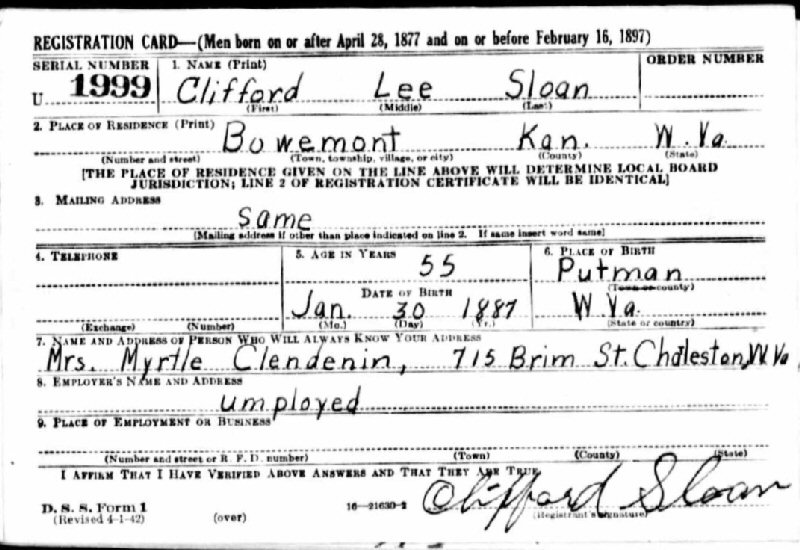 REGISTRATION CARD—(Men born on or after April 28, 1877 and on or before February 16, 1897)
SERIAL NUMBER 1. NAME (Print) ORDER NUMBER
U 1999 Clifford Lee Sloan
(First) (Middle) (Last)
2. PLACE OF RESIDENCE (Print)
Bowemont Kan. W. Va.
(Number and street) (Town, township, village, or city) (County) (State)
[THE PLACE OF RESIDENCE GIVEN ON THE LINE ABOVE WILL DETERMINE LOCAL BOARD
JURISDICTION; LINE 2 OF REGISTRATION CERTIFICATE WILL BE IDENTICAL]
3. MAILING ADDRESS
same
(Mailing address if other than place indicated on line 2. If same insert word same)
4. TELEPHONE 5. AGE IN YEARS 6. PLACE OF BIRTH
55 Putman
DATE OF BIRTH (Town or county)
Jan. 30 1887 W Va.
(Exchange) (Number) (Mo.) (Day) (Yr.) (State or country)
7. NAME AND ADDRESS OF PERSON WHO WILL ALWAYS KNOW YOUR ADDRESS
Mrs. Myrtle Clendenin, 715 Brim St. Chaleston, W. Va
8. EMPLOYER'S NAME AND ADDRESS
umployed
9. PLACE OF EMPLOYMENT OR BUSINESS
(Number and street or R. F. D. number) (Town) (County) (State)
I AFFIRM THAT I HAVE VERIFIED ABOVE ANSWERS AND THAT THEY ARE TRUE.
D. S. S. Form 1 16—21630-2 Clifford Sloan
(Revised 4-1-42) (over) (Registrant's signature)